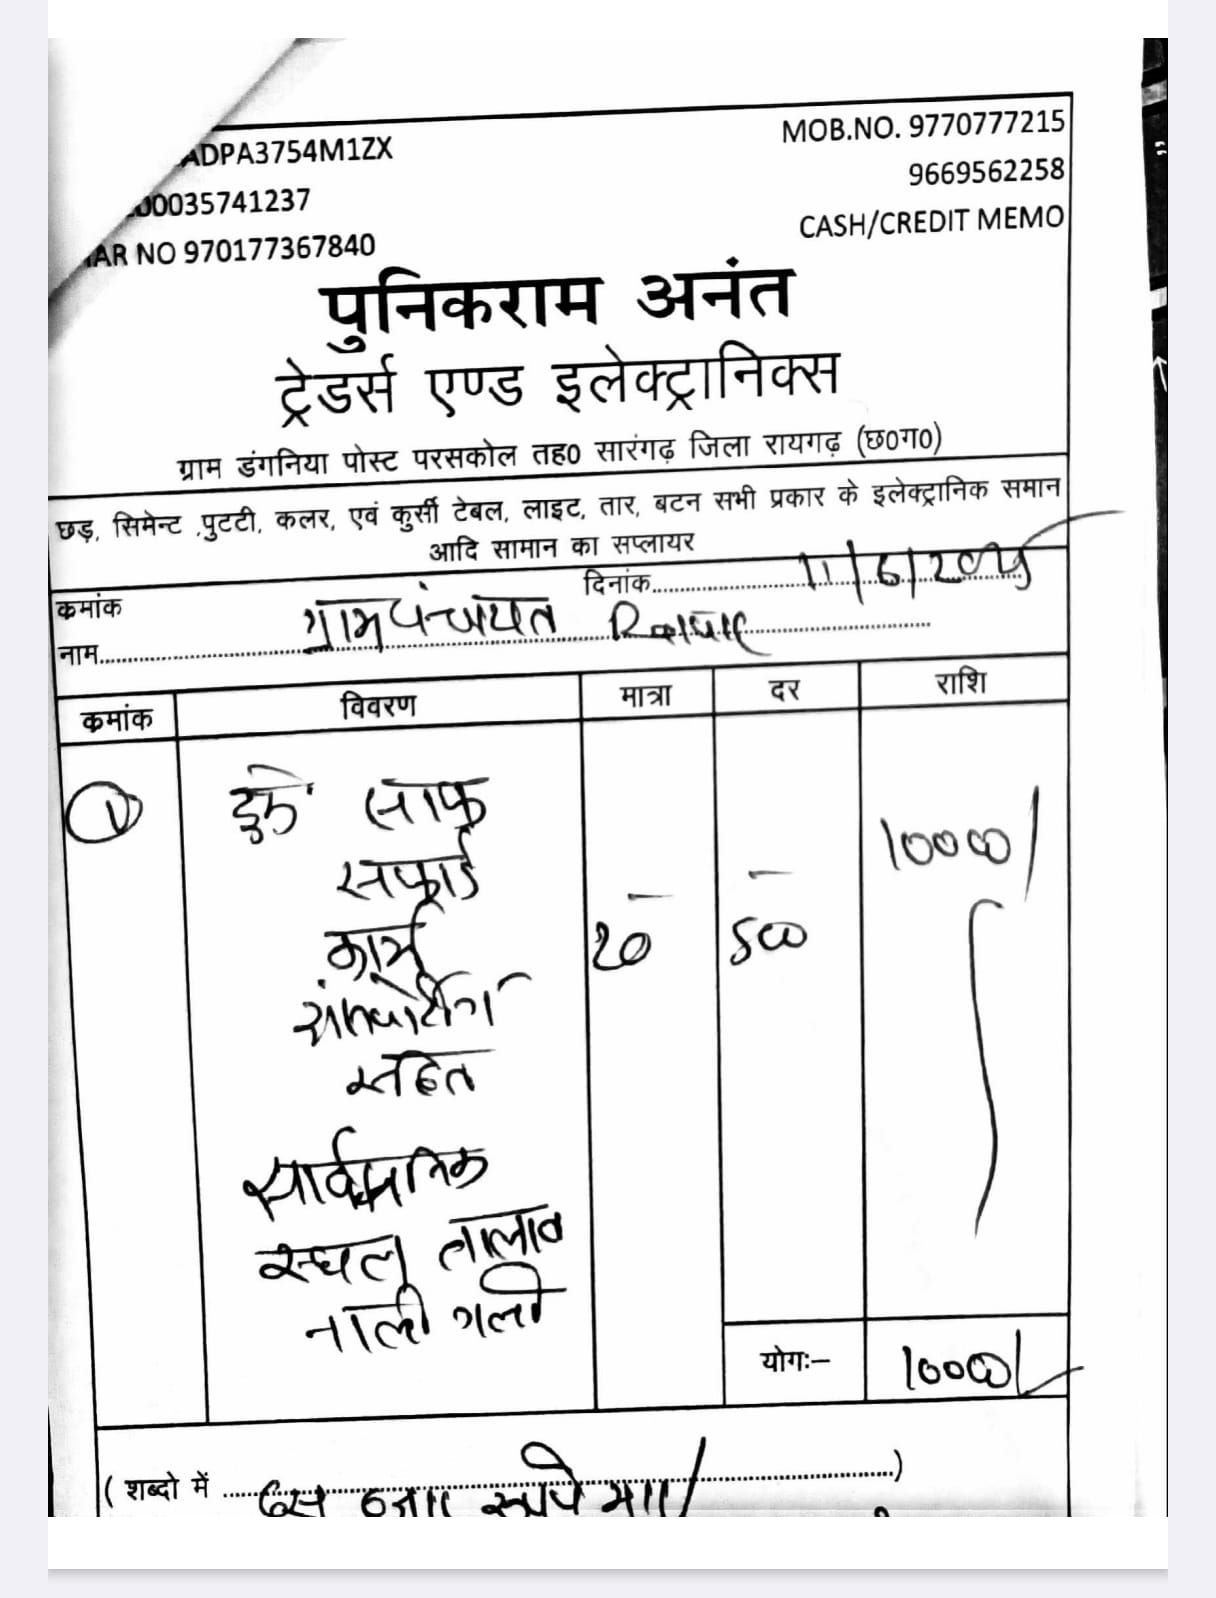 ADPA3754M1ZX
MOB.NO. 9770777215
00035741237
9669562258
AR NO 970177367840
CASH/CREDIT MEMO
पुनिकराम अनंत
ट्रेडर्स एण्ड इलेक्ट्रानिक्स
ग्राम डंगनिया पोस्ट परसकोल तह0 सारंगढ़ जिला रायगढ़ (छ0ग0)
छड़, सिमेन्ट ,पुटटी, कलर, एवं कुर्सी टेबल, लाइट, तार, बटन सभी प्रकार के इलेक्ट्रानिक समान
आदि सामान का सप्लायर
कमांक दिनांक 11/6/2025
नाम ग्रामपंचायत
कमांक विवरण मात्रा दर राशि
1 साफ 10000/
सफाई
कार्य 20 500
सहित
सार्वजनिक
स्थल तालाब
नाली गली
योगः- 10000/
( शब्दो में दस हजार रूपये मात्र/ )